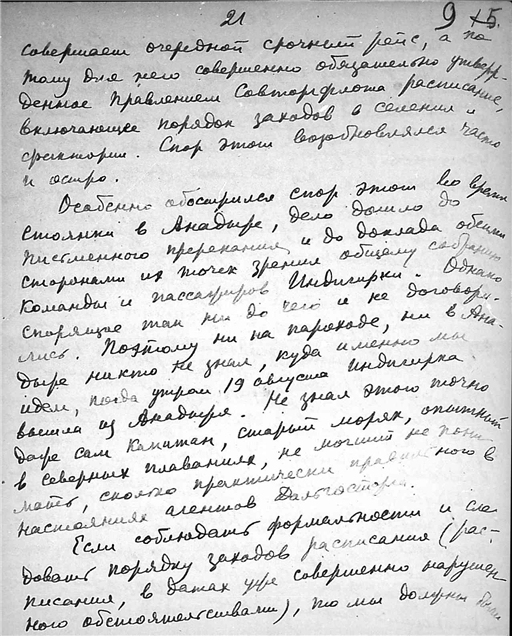 21
9 15.
совершает очередной срочный рейс, а по
тому для него совершенно обязательно утверж-
денное Правлением Совторгфлота расписание,
включающее порядок заходов в селения и
фактории. Спор этот возобновлялся часто
и остро.
Особенно обострился спор этот во время
стоянки в Анадыре, дело дошло до
письменного пререкания и до доклада обеими
сторонами их точек зрения общему собранию
команды и пассажиров Индигирки. Однако
спорящие так ни до чего и не договори-
лись. Поэтому ни на пароходе, ни в Ана-
дыре никто не знал, куда именно мы
идем, когда утром 19 августа Индигирка
вышла из Анадыря. Не знал этого точно
даже сам капитан, старый моряк, опытный
в северных плаваниях, не могший не пони
мать, сколько практически правильного в
настояниях агентов Дальгосторга.
Если соблюдать формальности и сле
довать порядку заходов расписания (рас-
писания, в датах уже совершенно нарушен
ного обстоятельствами), то мы должны были